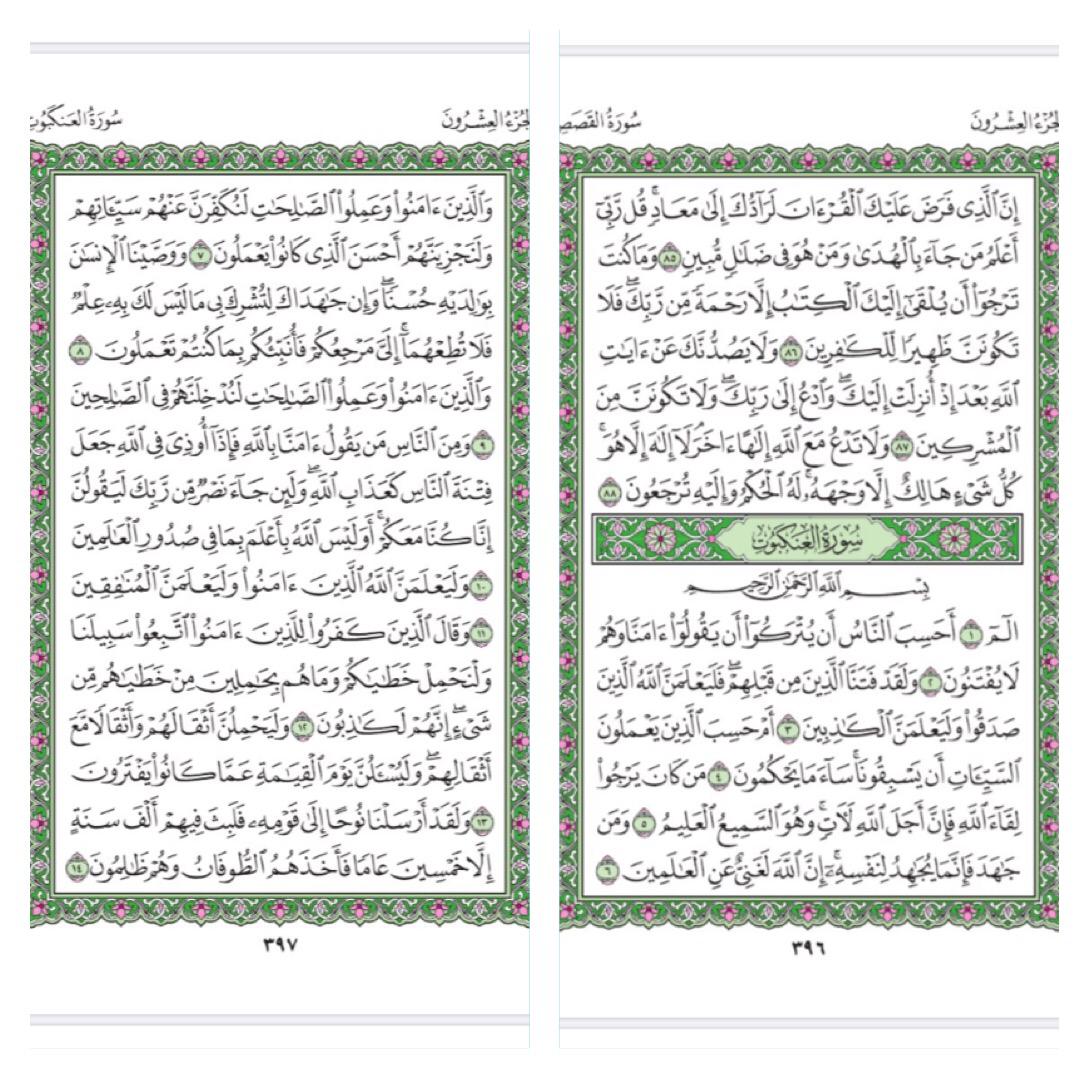 الجزء العشرون
سورة القصص
إِنَّ ٱلَّذِى فَرَضَ عَلَيْكَ ٱلْقُرْءَانَ لَرَآدُّكَ إِلَىٰ مَعَادٍ ۚ قُل رَّبِّىٓ
أَعْلَمُ مَن جَآءَ بِٱلْهُدَىٰ وَمَنْ هُوَ فِى ضَلَـٰلٍ مُّبِينٍ ٨٥ وَمَا كُنتَ
تَرْجُوٓا۟ أَن يُلْقَىٰٓ إِلَيْكَ ٱلْكِتَـٰبُ إِلَّا رَحْمَةً مِّن رَّبِّكَ ۖ فَلَا
تَكُونَنَّ ظَهِيرًا لِّلْكَـٰفِرِينَ ٨٦ وَلَا يَصُدُّنَّكَ عَنْ ءَايَـٰتِ
ٱللَّهِ بَعْدَ إِذْ أُنزِلَتْ إِلَيْكَ ۖ وَٱدْعُ إِلَىٰ رَبِّكَ ۖ وَلَا تَكُونَنَّ مِنَ
ٱلْمُشْرِكِينَ ٨٧ وَلَا تَدْعُ مَعَ ٱللَّهِ إِلَـٰهًا ءَاخَرَ ۘ لَآ إِلَـٰهَ إِلَّا هُوَ ۚ
كُلُّ شَىْءٍ هَالِكٌ إِلَّا وَجْهَهُۥ ۚ لَهُ ٱلْحُكْمُ وَإِلَيْهِ تُرْجَعُونَ ٨٨
سُورَةُ العَنكَبُوت
بِسْمِ ٱللَّهِ ٱلرَّحْمَـٰنِ ٱلرَّحِيمِ
الٓمٓ ١ أَحَسِبَ ٱلنَّاسُ أَن يُتْرَكُوٓا۟ أَن يَقُولُوٓا۟ ءَامَنَّا وَهُمْ
لَا يُفْتَنُونَ ٢ وَلَقَدْ فَتَنَّا ٱلَّذِينَ مِن قَبْلِهِمْ ۖ فَلَيَعْلَمَنَّ ٱللَّهُ ٱلَّذِينَ
صَدَقُوا۟ وَلَيَعْلَمَنَّ ٱلْكَـٰذِبِينَ ٣ أَمْ حَسِبَ ٱلَّذِينَ يَعْمَلُونَ
ٱلسَّيِّـَٔاتِ أَن يَسْبِقُونَا ۚ سَآءَ مَا يَحْكُمُونَ ٤ مَن كَانَ يَرْجُوا۟
لِقَآءَ ٱللَّهِ فَإِنَّ أَجَلَ ٱللَّهِ لَـَٔاتٍ ۚ وَهُوَ ٱلسَّمِيعُ ٱلْعَلِيمُ ٥ وَمَن
جَـٰهَدَ فَإِنَّمَا يُجَـٰهِدُ لِنَفْسِهِۦٓ ۚ إِنَّ ٱللَّهَ لَغَنِىٌّ عَنِ ٱلْعَـٰلَمِينَ ٦
٣٩٦
الجزء العشرون
سورة العنكبوت
وَٱلَّذِينَ ءَامَنُوا۟ وَعَمِلُوا۟ ٱلصَّـٰلِحَـٰتِ لَنُكَفِّرَنَّ عَنْهُمْ سَيِّـَٔاتِهِمْ
وَلَنَجْزِيَنَّهُمْ أَحْسَنَ ٱلَّذِى كَانُوا۟ يَعْمَلُونَ ٧ وَوَصَّيْنَا ٱلْإِنسَـٰنَ
بِوَٰلِدَيْهِ حُسْنًا ۖ وَإِن جَـٰهَدَاكَ لِتُشْرِكَ بِى مَا لَيْسَ لَكَ بِهِۦ عِلْمٌ
فَلَا تُطِعْهُمَآ ۚ إِلَىَّ مَرْجِعُكُمْ فَأُنَبِّئُكُم بِمَا كُنتُمْ تَعْمَلُونَ ٨
وَٱلَّذِينَ ءَامَنُوا۟ وَعَمِلُوا۟ ٱلصَّـٰلِحَـٰتِ لَنُدْخِلَنَّهُمْ فِى ٱلصَّـٰلِحِينَ
٩ وَمِنَ ٱلنَّاسِ مَن يَقُولُ ءَامَنَّا بِٱللَّهِ فَإِذَآ أُوذِىَ فِى ٱللَّهِ جَعَلَ
فِتْنَةَ ٱلنَّاسِ كَعَذَابِ ٱللَّهِ ۖ وَلَئِن جَآءَ نَصْرٌ مِّن رَّبِّكَ لَيَقُولُنَّ
إِنَّا كُنَّا مَعَكُمْ ۚ أَوَلَيْسَ ٱللَّهُ بِأَعْلَمَ بِمَا فِى صُدُورِ ٱلْعَـٰلَمِينَ
١٠ وَلَيَعْلَمَنَّ ٱللَّهُ ٱلَّذِينَ ءَامَنُوا۟ وَلَيَعْلَمَنَّ ٱلْمُنَـٰفِقِينَ
١١ وَقَالَ ٱلَّذِينَ كَفَرُوا۟ لِلَّذِينَ ءَامَنُوا۟ ٱتَّبِعُوا۟ سَبِيلَنَا
وَلْنَحْمِلْ خَطَـٰيَـٰكُمْ وَمَا هُم بِحَـٰمِلِينَ مِنْ خَطَـٰيَـٰهُم مِّن
شَىْءٍ ۖ إِنَّهُمْ لَكَـٰذِبُونَ ١٢ وَلَيَحْمِلُنَّ أَثْقَالَهُمْ وَأَثْقَالًا مَّعَ
أَثْقَالِهِمْ ۖ وَلَيُسْـَٔلُنَّ يَوْمَ ٱلْقِيَـٰمَةِ عَمَّا كَانُوا۟ يَفْتَرُونَ
١٣ وَلَقَدْ أَرْسَلْنَا نُوحًا إِلَىٰ قَوْمِهِۦ فَلَبِثَ فِيهِمْ أَلْفَ سَنَةٍ
إِلَّا خَمْسِينَ عَامًا فَأَخَذَهُمُ ٱلطُّوفَانُ وَهُمْ ظَـٰلِمُونَ ١٤
٣٩٧